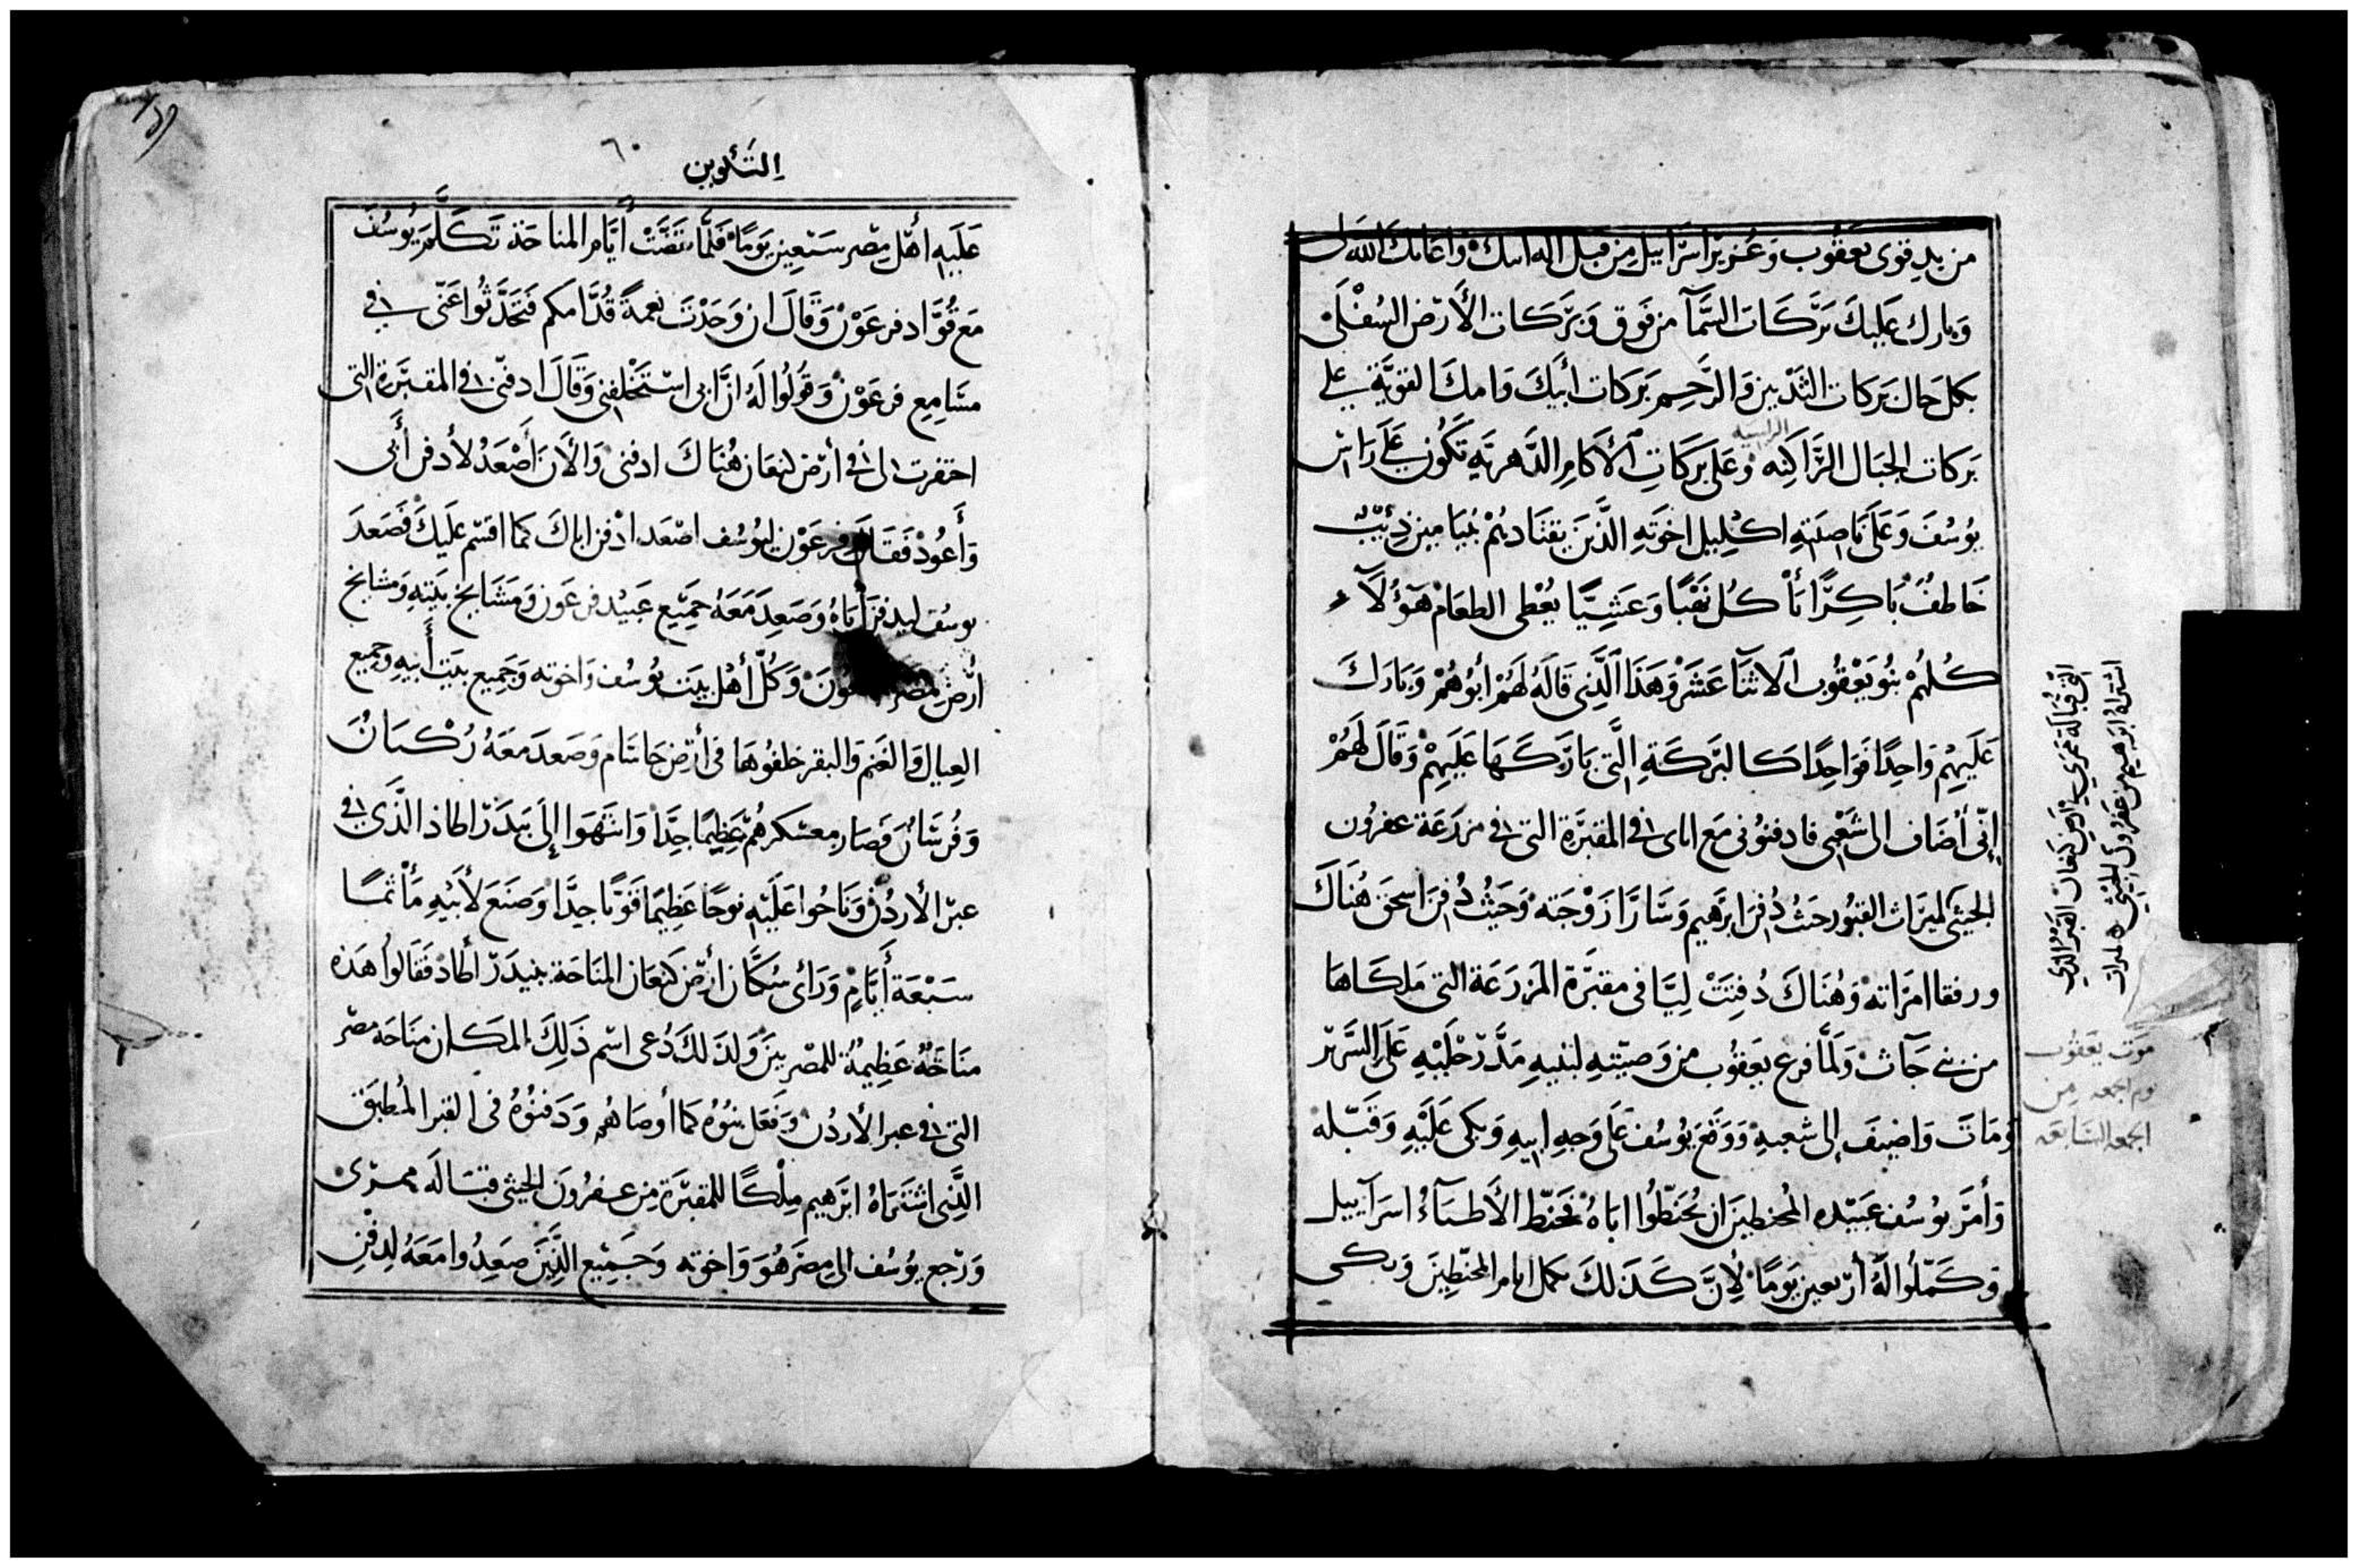 من يد قوى يعقوب وعزيز اسراييل من قبل اله ابيك واعانك الله لى
وبارك عليك بركات السمآ من فوق وبركات الأرض السفلى
بكل حال بركات الثديين والرحم بركات أبيك وامك القوية على
بركات الجبال الراكنه وعلى بركات الأكام الدهرية تكون على راس
الراسيه
يوسف وعلى ناصيته اكليل اخوته الذين يقتادهم بنيامين ذئب
خاطف باكرًا يأكل نهبًا وعشيًا يعطى الطعام هؤلآء
كلهم بنو يعقوب الاثنا عشر وهذا الذى قاله لهم أبوهم وبارك
عليهم واحدًا فواحدًا كالبركة التى باركها عليهم وقال لهم
إنى أضاف الى شعبى فادفنونى مع اباى فى المقبرة التى فى مزرعة عفرون
الحيثى لميراث القبور حيث دفن ابرهيم وسارا زوجته وحيث دفن اسحق هناك
ورفقا امراته وهناك دفنت ليا فى مقبرة المزرعة التى ملكاها
من بنى حآث ولما فرغ يعقوب من وصيته لبنيه مدد رجليه على السرير
ومات واضيف إلى شعبه ووقع يوسف على وجه ابيه وبكى عليه وقبله
وأمر يوسف عبيده المحنطين ان يحنطوا اباه فحنط الأطبآء اسرآييل
وكملوا له أربعين يومًا لإن كذلك تكمل ايام المحنطين وبكى
التى قبالة ممرى فى ارض كنعان القبر الذى
اشتراه ابرهيم من عفرون الحيثى لميراث
موت يعقوب
يوم الجمعه من
الجمعه السابعه
التكوين
٦٠
عليه أهل مصر سبعين يومًا فلما تقضت أيام المناحة تكلم يوسف
مع قواد فرعون وقال ان وجدت نعمةً قدامكم فتحدثوا عنى فى
مسامع فرعون وقولوا له ان ابى استخلفنى وقال ادفنى فى المقبرة التى
احتفرت لى فى أرض كنعان هناك ادفنى والأن أصعد لأدفن أبى
وأعود فقال فرعون ليوسف اصعد ادفن اباك كما اقسم عليك فصعد
يوسف ليدفن أباه وصعد معه جميع عبيد فرعون ومشايخ بيته ومشايخ
أرض مصر وكل أهل بيت يوسف واخوته وجميع بيت أبيه وجميع
العيال والغنم والبقر خلفوها فى أرض جاسام وصعد معه ركبان
وفرسان فصار معسكرهم عظيمًا جدًا وانتهوا إلى بيدر اطاد الذى فى
عبر الأردن وناحوا عليه نوحًا عظيمًا قويًا جدًا وصنع لأبيه مأتمًا
سبعة أيام ورأى سكان أرض كنعان المناحة ببيدر أطاد فقالوا هذه
مناحة عظيمة للمصريين ولذلك دعى اسم ذلك المكان مناحه مصر
التى فى عبر الأردن وفعل بنوه كما أوصاهم ودفنوه فى القبر المطبق
الذى اشتراه ابرهيم ملكًا للمقبرة من عفرون الحيثى قباله ممرى
ورجع يوسف الى مصر هو واخوته وجميع الذين صعدوا معه لدفن